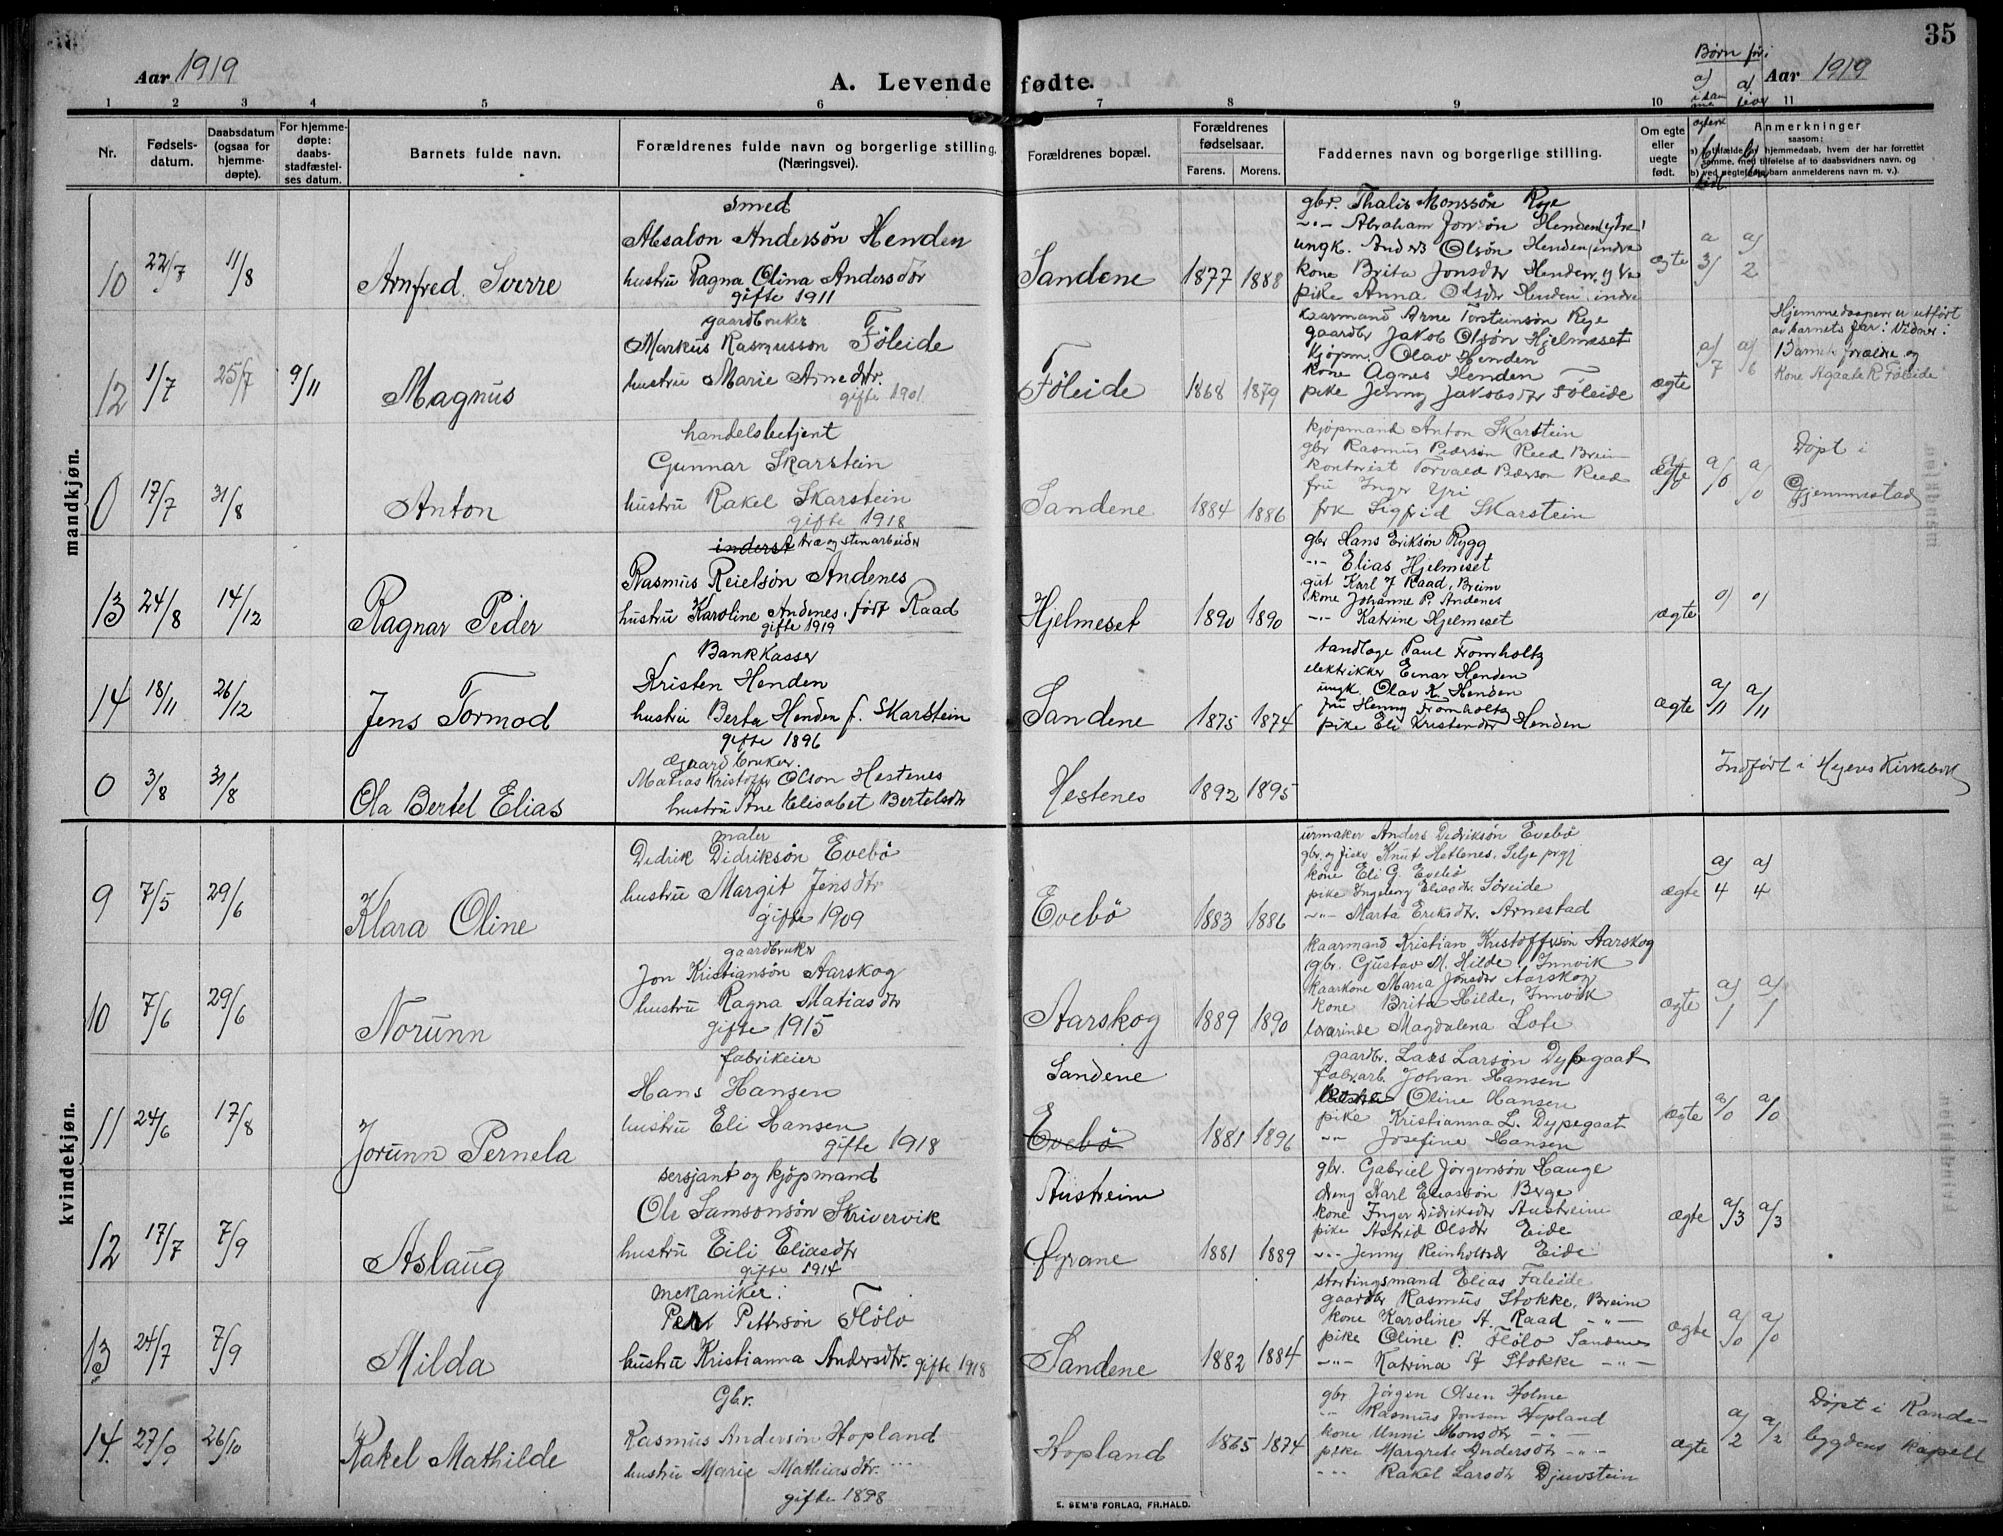 35
Aar 1919
A. Levende fødte.
Børn før:
Aar 1919
1 2 3 4 5 6 7 8 9 10 11
Nr.
Fødsels-
datum.
Daabsdatum
(ogsaa for
hjemme-
døpte).
For hjemme-
døpte:
daabs-
stadfæstel-
ses datum.
Barnets fulde navn.
Forældrenes fulde navn og borgerlige stilling.
(Næringsvei).
Forældrenes bopæl.
Forældrenes
fødselsaar.
Farens. Morens.
Faddernes navn og borgerlige stilling.
Om egte
eller
uegte
født.
Anmerkninger
saasom:
mandkjøn.
10 22/7 11/8 Arnfred Sverre
Smed
Absalon Andersøn Henden
hustru Ragna Olina Andersdtr
gifte 1911
Sandene 1877 1888
gbr. Thalis Monssøn Rye
-"- Abraham Jonsøn Henden (ytre)
ungk. Anders Olsøn Henden (indre
kone Brita Jonsdtr Henden, ytre
pike Anna Olsdtr Henden indre
ægte a/3 a/2
12 1/7 25/7 9/11 Magnus
gaardbruker
Markus Rasmusson Føleide
hustru Marie Arnedtr.
gifte 1901.
Føleide 1868 1879
kaarmand Arne Torsteinsøn Rye
gaardbr Jakob Olsøn Hjelmeset
kjøpm. Olav Henden
kone Agnes Henden
pike Jenny Jakobsdtr Føleide
ægte a/7 a/6
Hjemmedaapen er utført
av barnets far: Vidner:
Barnets forældre og
kone Agaate R Føleide
0 17/7 31/8 Anton
handelsbetjent
Gunnar Skarstein
hustru Rakel Skarstein
gifte 1918
Sandene 1884 1886
kjøpmand Anton Skarstein
gbr Rasmus Pedersøn Reed Breim
kontorist Torvald Pederson Reed
fru Inger Yri
frk Sigfrid Skarstein
ægte a/0 a/0
Døpt i
Gjemmestad
13 24/8 14/12 Ragnar Peder
inderst træ og stenarbeider
Rasmus Reielsøn Andenes
hustru Karoline Andenes. født Raad
gifte 1919
Hjelmeset 1890 1890
gbr Hans Eriksøn Rygg
-"- Elias Hjelmeset
gut Karl J Raad, Breim
kone Johanne P. Andenes
-"- Katrine Hjelmeset
ægte a/ a/
14 18/11 26/12 Jens Tormod
Bankkasser
Kristen Henden
hustru Berta Henden f. Skarstein
gifte 1896
Sandene 1875 1874
tandlæge Paul Fromholtz
elektrikker Einar Henden
ungk. Olav K. Henden
fru Henny Fromholtz
pike Eli Kristensdtr Henden
ægte a/11 a/11
0 3/8 31/8 Ola Bertel Elias
Gaardbruker.
Matias Kristoffer Olson Hestenes
hustru Ane Elisabet Bertelsdtr
Hestenes 1892 1895
Indført i Hyens Kirkebok
kvindekjøn.
9 7/5 29/6 Klara Oline
maler
Didrik Didriksøn Evebø
hustru Margit Jensdtr
gifte 1909
Evebø 1883 1886
urmaker Anders Didriksøn Evebø
gbr. og fisker Knut Hetlenes, Selje prgj
kone Eli G. Evebø
pike Ingeborg Eliasdtr. Søreide
-"- Marta Eriksdtr. Arnestad
ægte a/4 a/4
10 7/6 29/6 Norunn
gaardbruker
Jon Kristiansøn Aarskog
hustru Ragna Matiasdtr
gifte 1915
Aarskog 1889 1890
kaarmand Kristian Kristoffersøn Aarskog
gbr. Gustav M. Hilde, Innvik
kaarkone Maria Jonsdtr Aarskog
kone Brita Hilde, Innvik
lærerinde Magdalena Lote
ægte a/1 a/1
11 24/6 17/8 Jorunn Pernela
fabrikeier
Hans Hansen
hustru Eli Hansen
gifte 1918
Sandene
Evebø 1881 1896
gaardbr. Lars Larsøn Dypegaat
fabr.arb. Johan Hansen
Oline Hansen
pike Kristianna L. Dypegaat
-"- Josefine Hansen
ægte a/0 a/0
12 17/7 7/9 Aslaug
sersjant og kjøpmand
Ole Samsonsøn Skrivervik
hustru Eili Eliasdtr
gifte 1914
Austreim
Øyrane 1881 1889
gbr. Gabriel Jørgensøn Hauge
dreng Karl Eliassøn Berge
kone Inger Didriksdtr Austreim
pike Astrid Olsdtr Eide
-"- Jenny Reinholtsdtr Eide
ægte a/3 a/3
13 24/7 7/9 Milda
mekaniker:
Petter Pettersøn Flølo
hustru Kristianna Andersdtr. gifte 1918
Sandene 1882 1884
stortingsmand Elias Faleide
gaardbr Rasmus Stokke, Breim
kone Karoline A. Raad -"-
pike Oline P. Flølo Sandene
-"- Katrina A Stokke -"-
ægte a/0 a/0
14. 27/9 26/10 Rakel Mathilde
Gbr.
Rasmus Andersøn Hopland
hustru Marie Mathiasdtr. -"-
gifte 1898
Hopland 1865 1874
gbr Jørgen Olsen Holme
-"- Rasmus Jonsen Hopland
kone Unni Monsdtr -"-
pike Margrete Andersdtr -"-
-"- Rakel Larsdtr Djuvstein
ægte a/2 a/2
Døpt i Randa-
bygdens kapell
E. SEM'S FORLAG, FR.HALD.